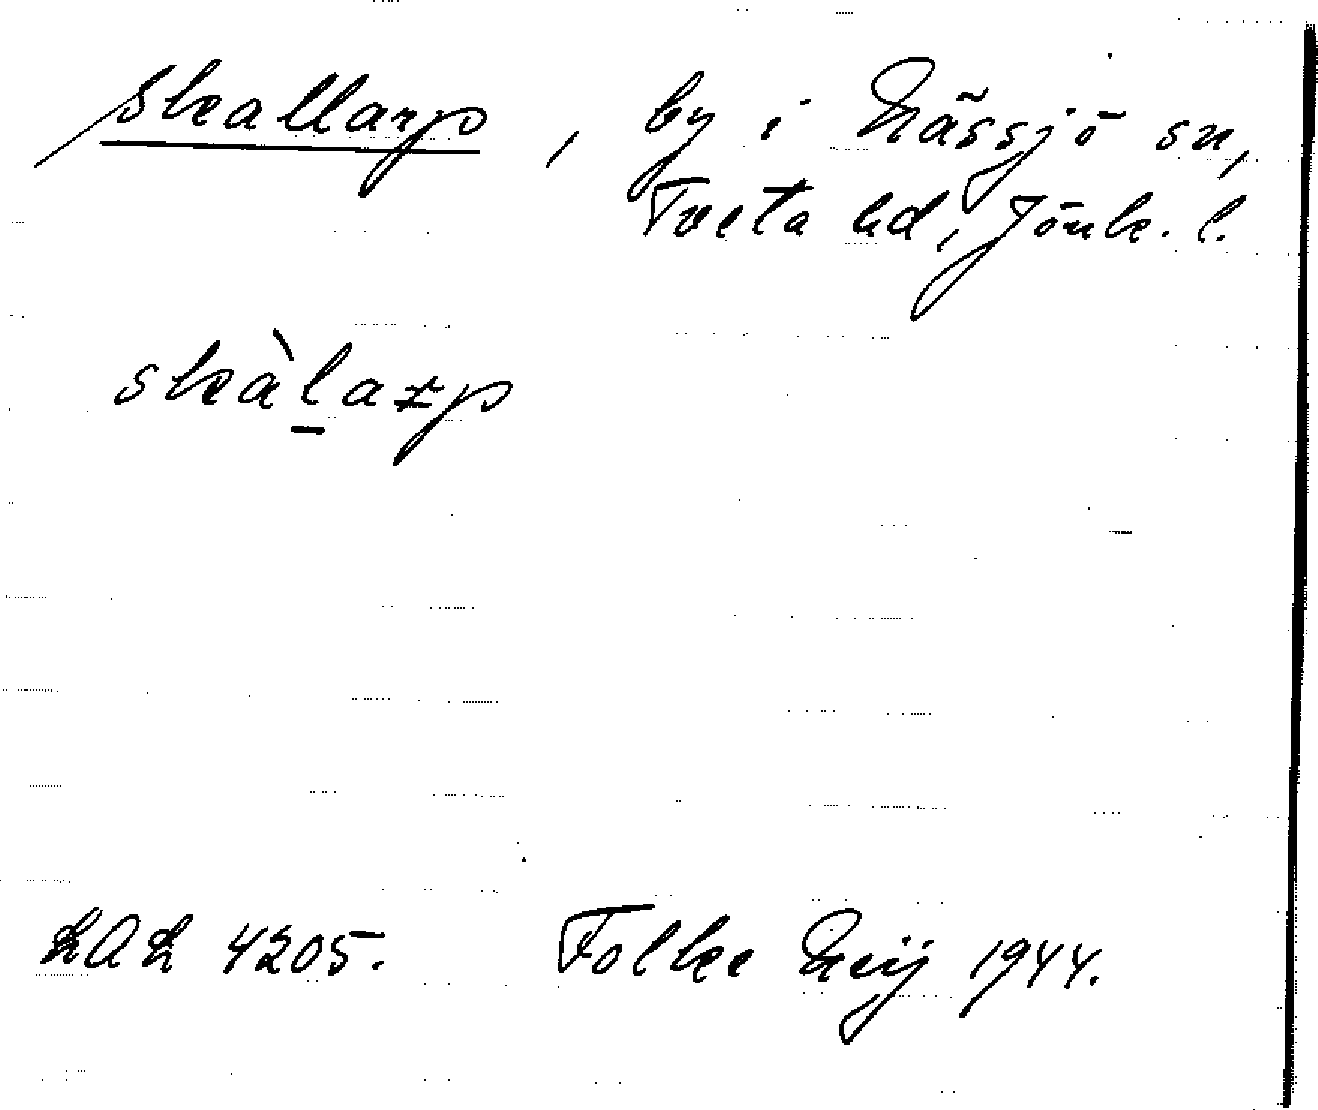 Skallarp, by i Nässjö sn,
Tveta hd, Jönk. l.
skàlarp
4205. Folke 1944.